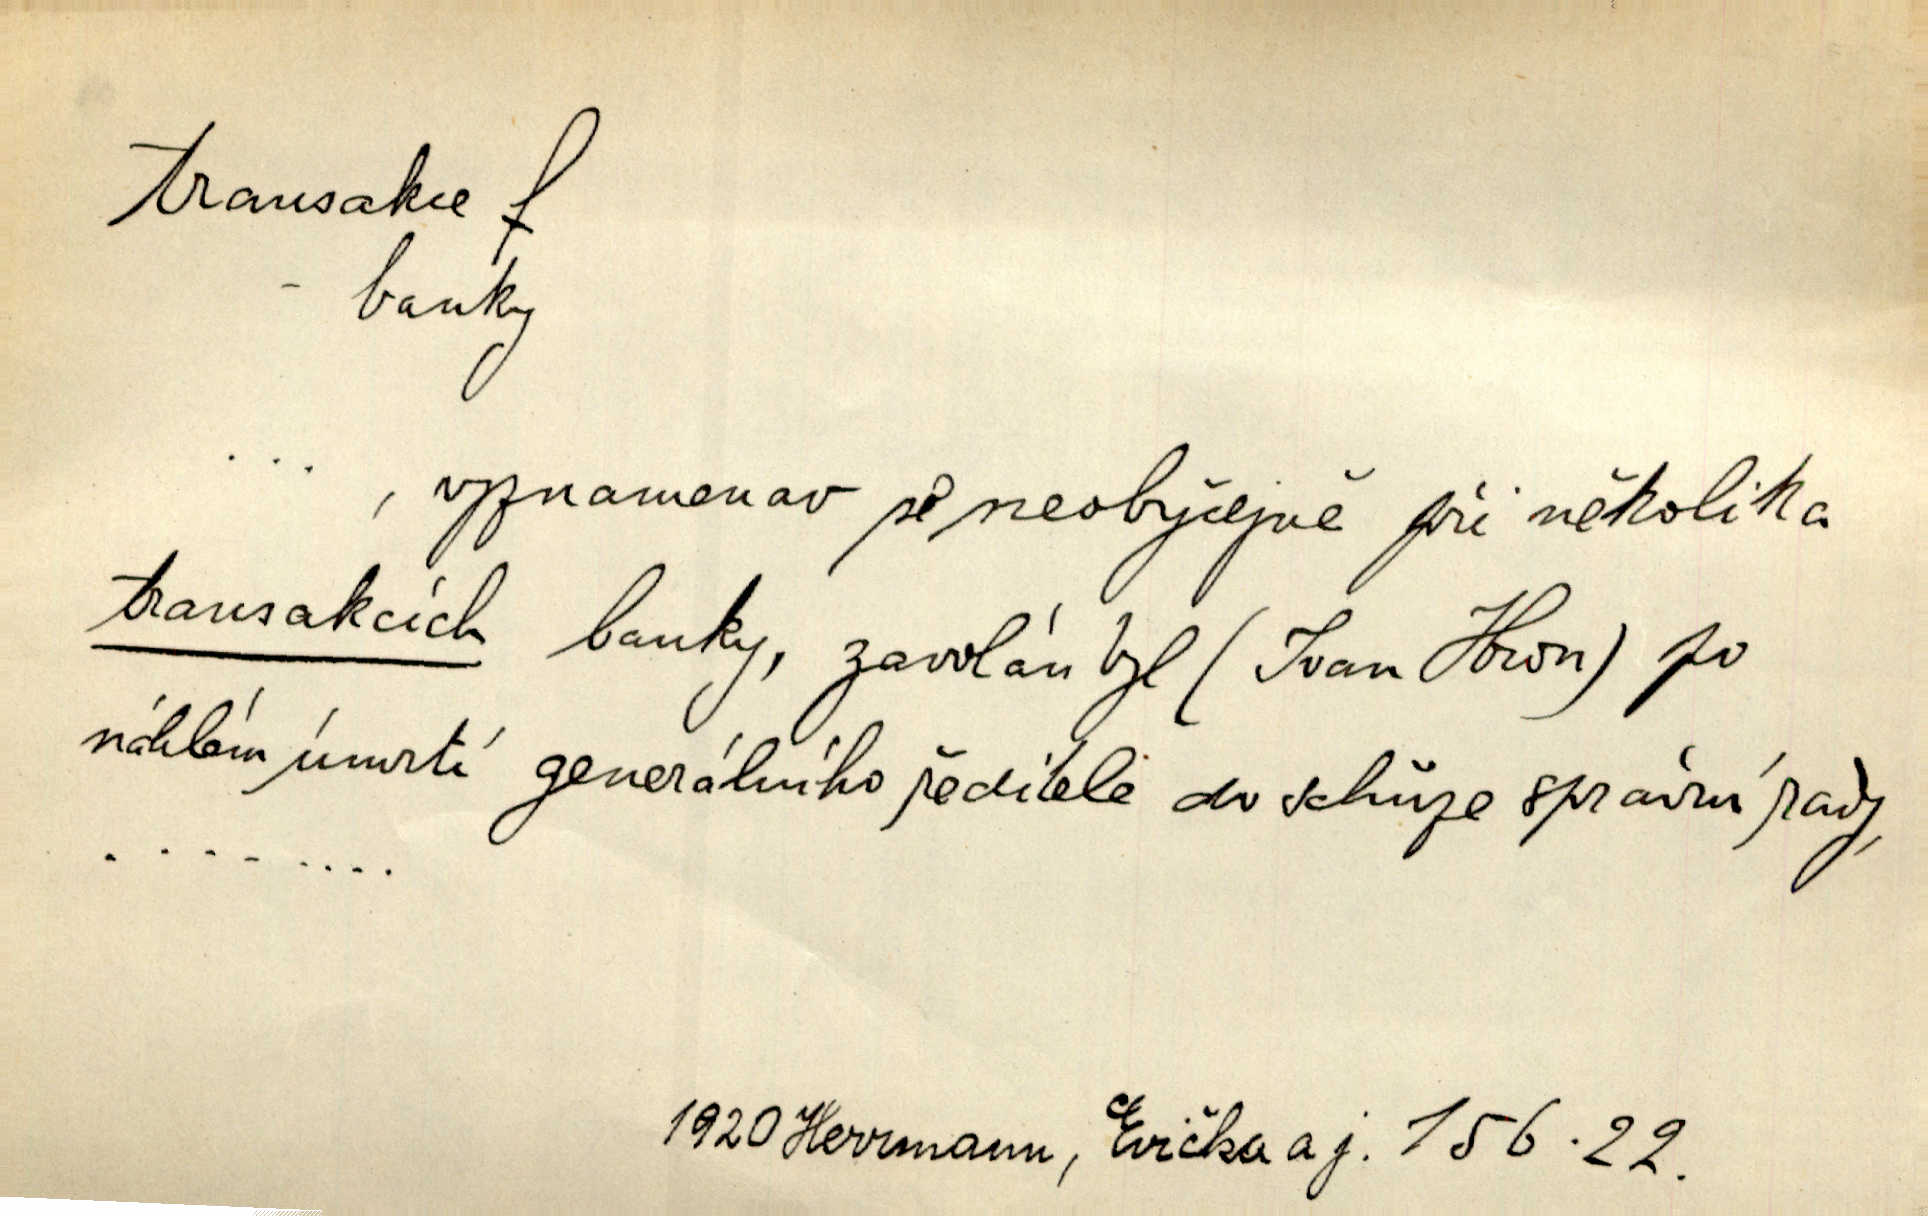 transakce f
- banky
..., vyznamenav se neobyčejně při několika
transakcích banky, zavolán byl (Ivan Hron) po
náhlém úmrtí generálního ředitele do schůze správní rady,
.........
1920 Herrmann, Evička a j. 156.22.